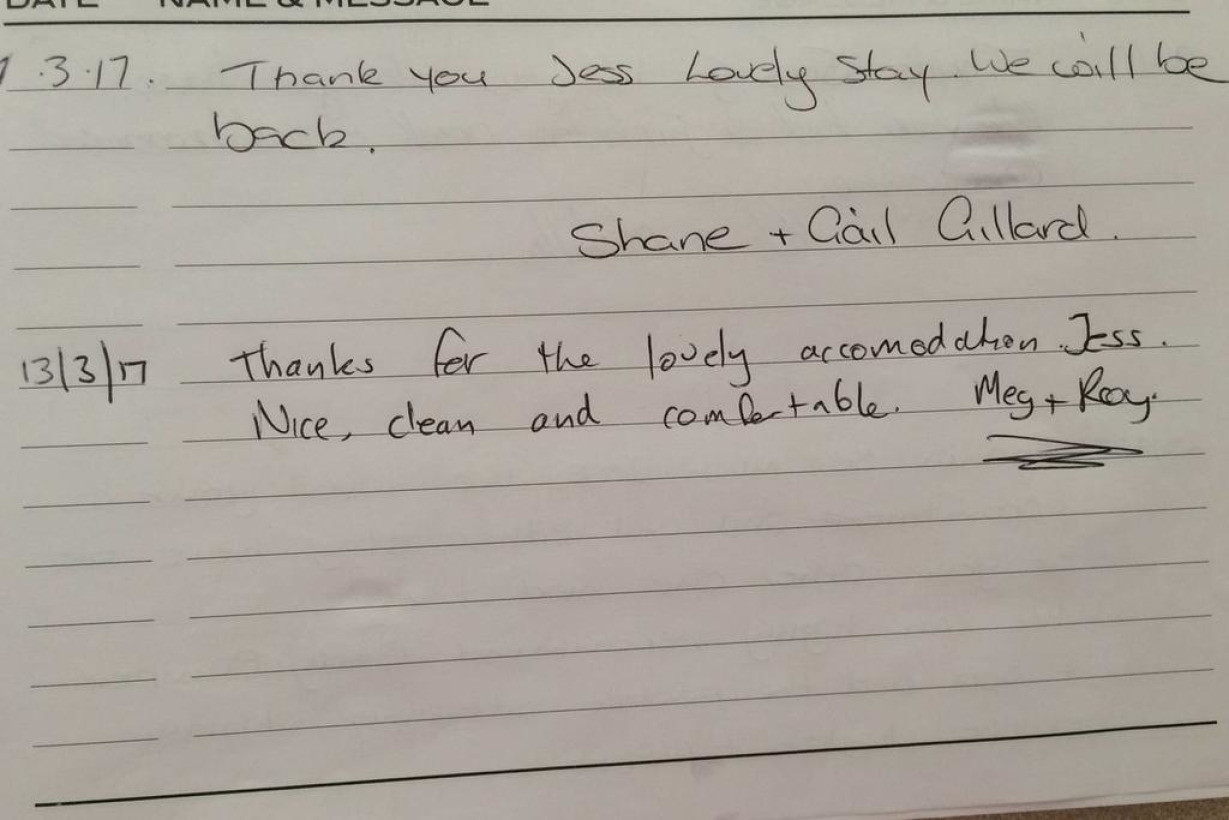 DATE NAME & MESSAGE
1.3.17. Thank you Jess Lovely Stay. We will be
back.
Shane + Gail Gillard.
13/3/17 Thanks for the lovely accomodation Jess.
Nice, clean and comfortable. Meg + Roy.